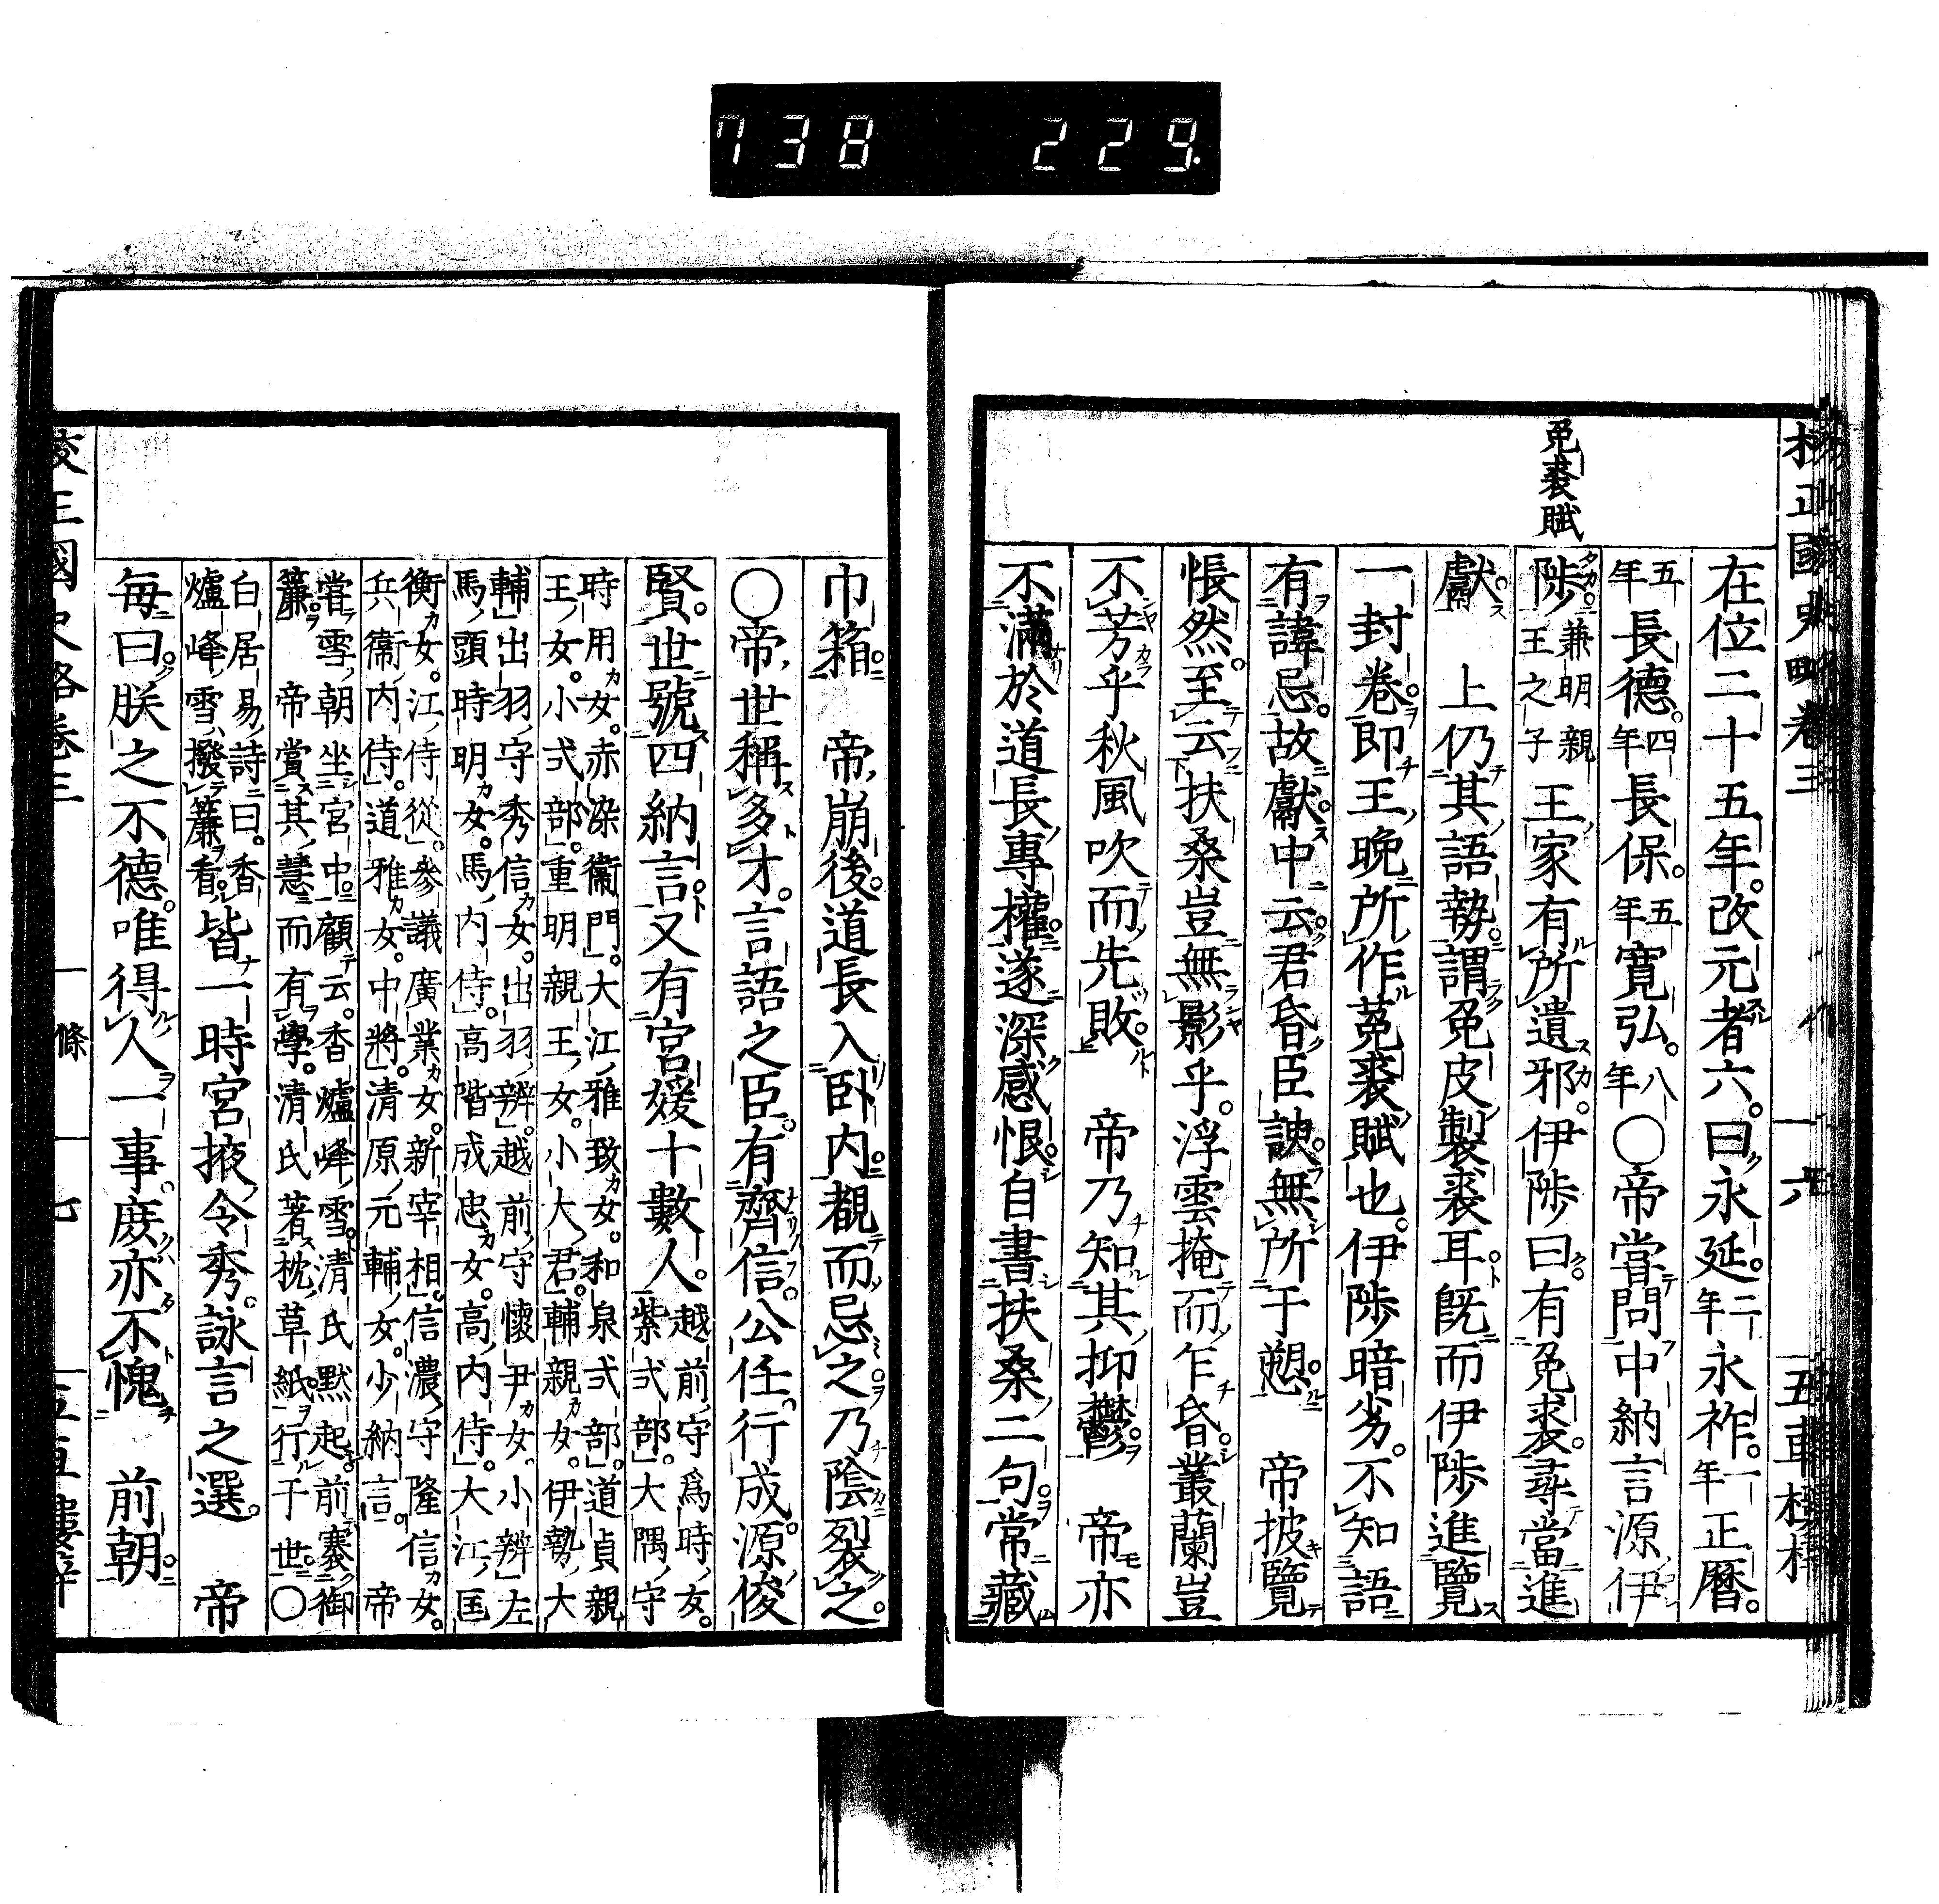 738 229.
校正國史略卷三 六 五車樓梓
菟裘賦
在位二十五年。改元者六。曰永延。二年永祚。一年正曆。
五年長德。四年長保。五年寬弘。八年〇帝嘗問中納言源伊
陟兼明親王之子王家有所遺邪。伊陟曰。有菟裘。尋當進
獻。 上仍其語勢。謂菟皮製裘耳。既而伊陟進覽
一封卷。即王晚所作菟裘賦也。伊陟暗劣。不知語
有諱忌。故獻。中云。君昏臣諛。無所于愬。 帝披覽
悵然。至云扶桑豈無影乎。浮雲掩而乍昏。叢蘭豈
不芳乎秋風吹而先敗。 帝乃知其抑鬱。 帝亦
不滿於道長專權。遂深感恨。自書扶桑二句。常藏
巾箱。 帝崩後。道長入臥內。覩而忌之。乃陰裂之。
〇帝世稱多才。言語之臣。有齊信。公任。行成。源俊
賢。世號四納言。又有宮媛十數人。越前守爲時女。紫式部。大隅守
時用女。赤染衞門。大江雅致女。和泉式部。道貞親
王女。小式部。重明親王女。小大君。輔親女。伊勢大
輔。出羽守秀信女。出羽辨。越前守懷尹女。小辨。左
馬頭時明女。馬內侍。高階成忠女。高內侍。大江匡
衡女。江侍從。參議廣業女。新宰相。信濃守隆信女。
兵衞內侍。道雅女。中將。清原元輔女。少納言。 帝
嘗雪朝坐宮中。顧云。香爐峰雪。清氏默起。前褰御
簾。 帝賞其慧而有學。清氏著枕草紙。行于世。〇
白居易詩曰。香爐峰雪撥簾看。皆一時宮掖令秀。詠言之選。 帝
每曰。朕之不德。唯得人一事。庶亦不愧 前朝。
校正國史略卷三 一條 七 五車樓梓